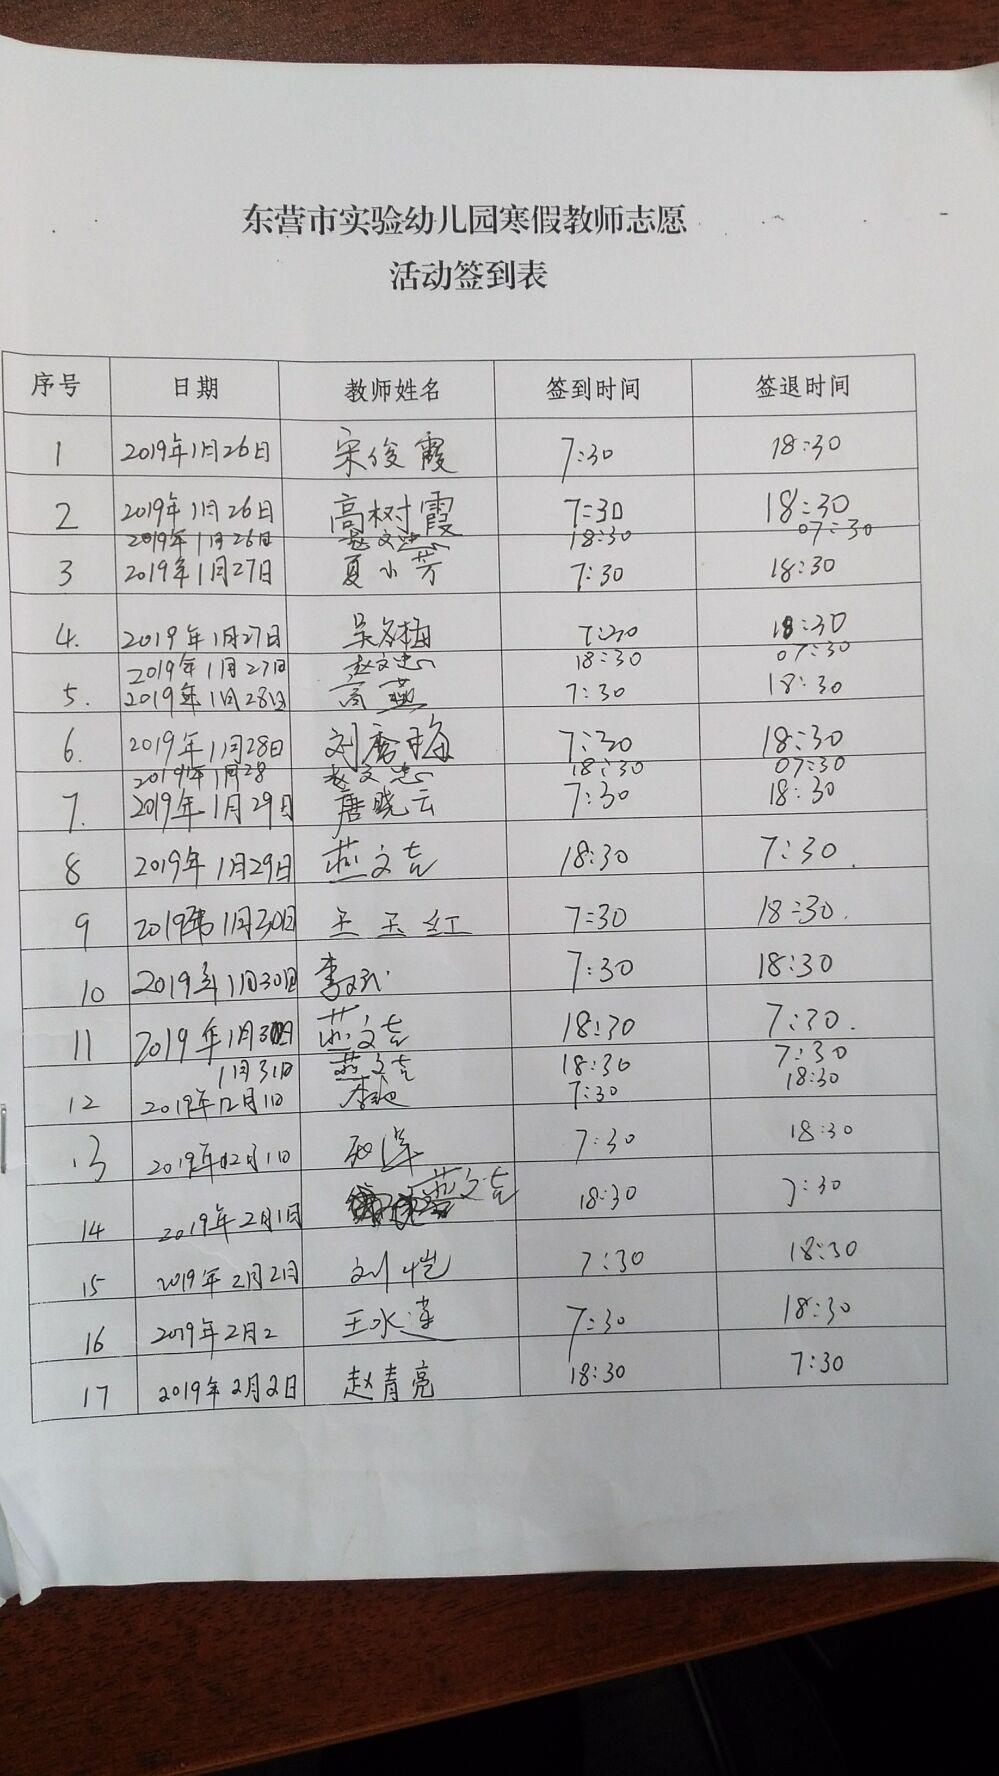 东营市实验幼儿园寒假教师志愿
活动签到表
序号 日期 教师姓名 签到时间 签退时间
1 2019年1月26日 宋俊霞 7:30 18:30
2 2019年1月26日 高树霞 7:30 18:30
2019年1月26日 赵文忠 18:30 07:30
3 2019年1月27日 夏小芳 7:30 18:30
4. 2019年1月27日 吴冬梅 7:30 18:30
2019年1月27日 赵文忠 18:30 07:30
5. 2019年1月28日 高燕 7:30 18:30
6. 2019年1月28日 刘秀梅 7:30 18:30
2019年1月28 赵文忠 18:30 07:30
7. 2019年1月29日 唐晓云 7:30 18:30
8 2019年1月29日 燕文吉 18:30 7:30.
9 2019年1月30日 王玉红 7:30 18:30.
10 2019年1月30日 李 7:30 18:30
11 2019年1月30日 燕文吉 18:30 7:30.
1月31日 燕文吉 18:30 7:30
12 2019年2月1日 李 7:30 18:30
13 2019年02月1日 7:30 18:30
14 2019年2月1日 燕文吉 18:30 7:30
15 2019年2月2日 刘恺 7:30 18:30
16 2019年2月2 王水莲 7:30 18:30
17 2019年2月2日 赵青亮 18:30 7:30